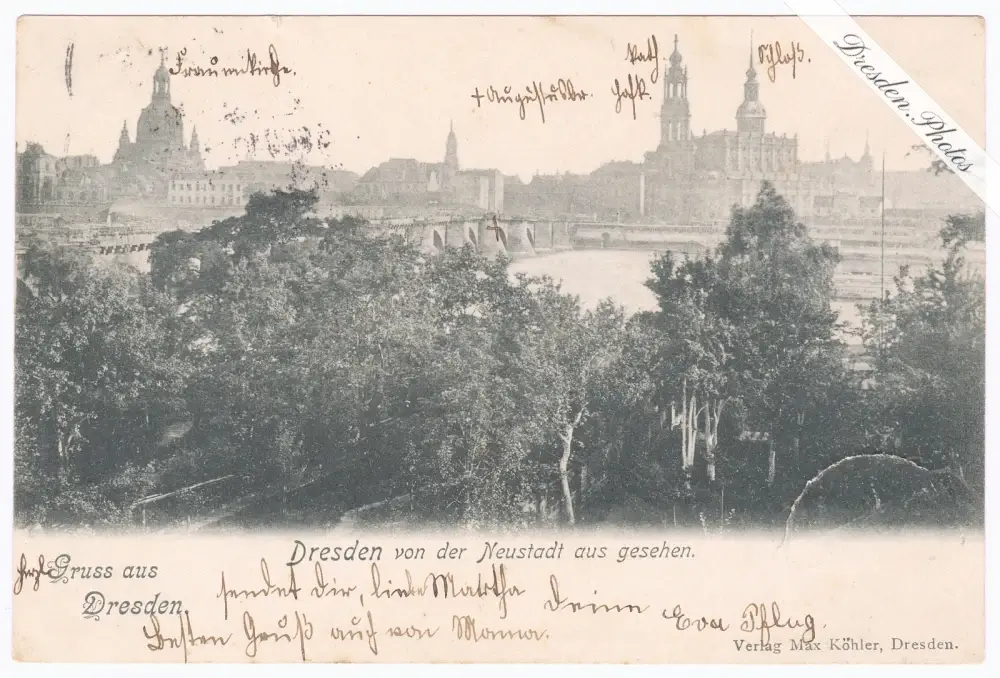 Frauenkirche.
+ Augustusbr.
kath
Hofk.
Schloß.
Dresden.Photos
Dresden von der Neustadt aus gesehen.
herzl. Gruss aus
Dresden.
sendet Dir, liebe Martha Deine Eva Pflug.
Besten Gruß auch von Mama.
Verlag Max Köhler, Dresden.